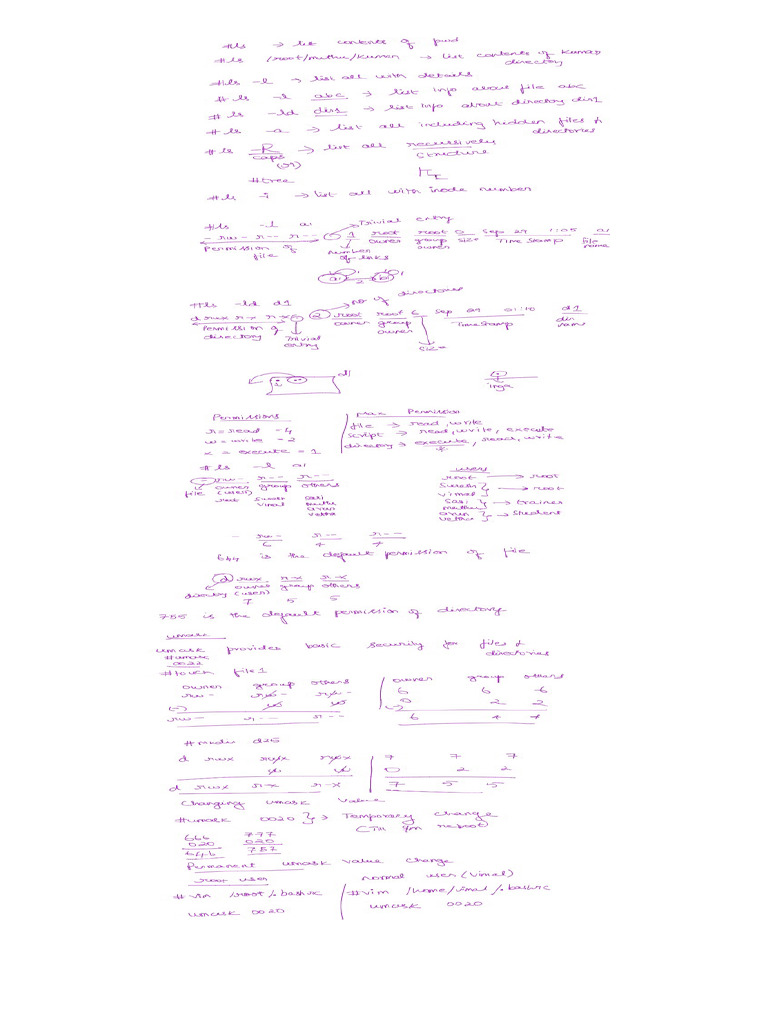 #ls → list contents of pwd
#ls /root/muthu/kumar → list contents of kumar directory
#ls -l → list all with details
#ls -l abc → list info about file abc
#ls -ld dir1 → list info about directory dir1
#ls -a → list all including hidden files & directories
#ls -R → list all recursively
caps structure
#tree
#ls i → list all with inode number
#ls -l a1 Trivial entry
- rw- r-- r-- . 1 root root 0 Sep 29 1:05 a1
Permission of file number of links owner group owner size Time Stamp file name
a1 2 b1
#ls -ld d1 no of directories
d rwx r-x r-x . 2 root root 6 Sep 29 01:10 d1
Permission of directory Trivial entry owner group owner size Time Stamp dir name
d1
inga
Permissions
r = read - 4
w = write - 2
x = execute = 1
Max Permission
file → read, write
script → read, write, execute
directory → execute, read, write
#ls -l a1
- rw- r-- r--
file owner (user) group others
root suresh vimal sasi muthu arun vetha
users
root → root
suresh vimal } → root
sasi muthu } → trainer
arun vetha } → student
- rw- r-- r--
6 4 4
644 is the default permission of file
d rwx r-x r-x
directory owner (user) group others
7 5 5
755 is the default permission of directory
umask
umask provides basic security for files & directories
#umask
0022
#touch file1
owner group others
rw- rw- rw-
(-) w w
rw- r-- r--
owner group others
6 6 6
0 2 2
(-)
6 4 4
#mkdir d25
d rwx rwx rwx
w w
d rwx r-x r-x
7 7 7
0 2 2
7 5 5
Changing umask value
#umask 0020 } → Temporary change
666 777
020 020
646 757
Permanent umask value change
root user
#vim /root/.bashrc
umask 0020
normal user (vimal)
#vim /home/vimal/.bashrc
umask 0020